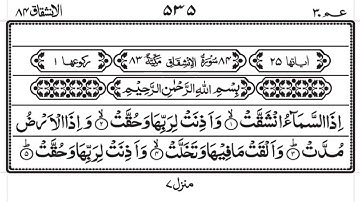 عم ۳۰ ۵۳۵ الانشقاق ۸۴
اٰیاتها ۲۵ ۸۴ سُوْرَةُ الْاِنْشِقَاقِ مَكِّيَّةٌ ۸۳ رکوعها ۱
بِسْمِ اللّٰهِ الرَّحْمٰنِ الرَّحِيْمِ
اِذَا السَّمَآءُ انْشَقَّتْ ۙ۱ وَ اَذِنَتْ لِرَبِّهَا وَحُقَّتْ ۙ۲ وَ اِذَا الْاَرْضُ
مُدَّتْ ۙ۳ وَاَلْقَتْ مَا فِيْهَا وَتَخَلَّتْ ۙ۴ وَاَذِنَتْ لِرَبِّهَا وَحُقَّتْ ؕ۵
منزل ۷